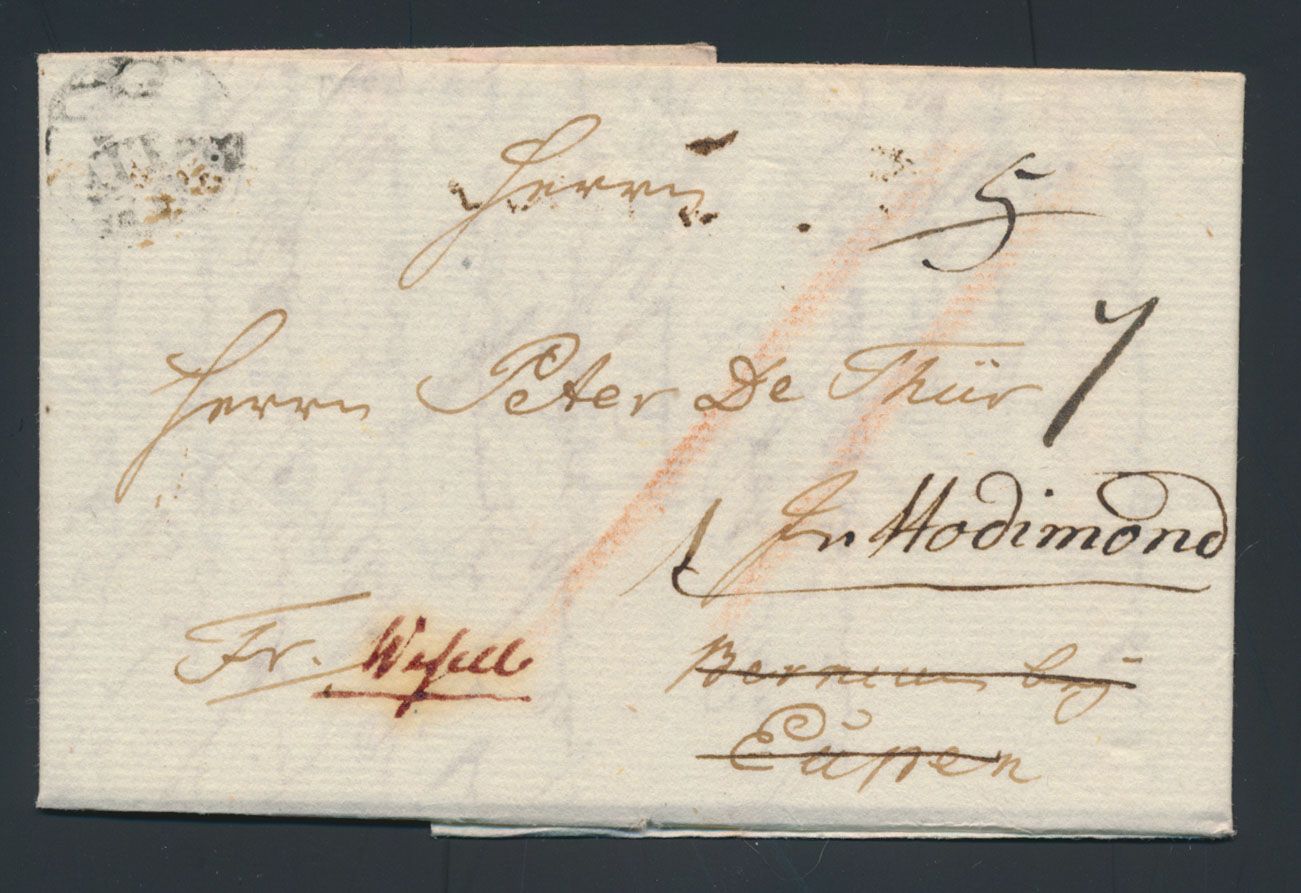 Herrn
5
Herrn Peter De Thür
7
In Hodimond
Fr. Wesell
bey
Eupen